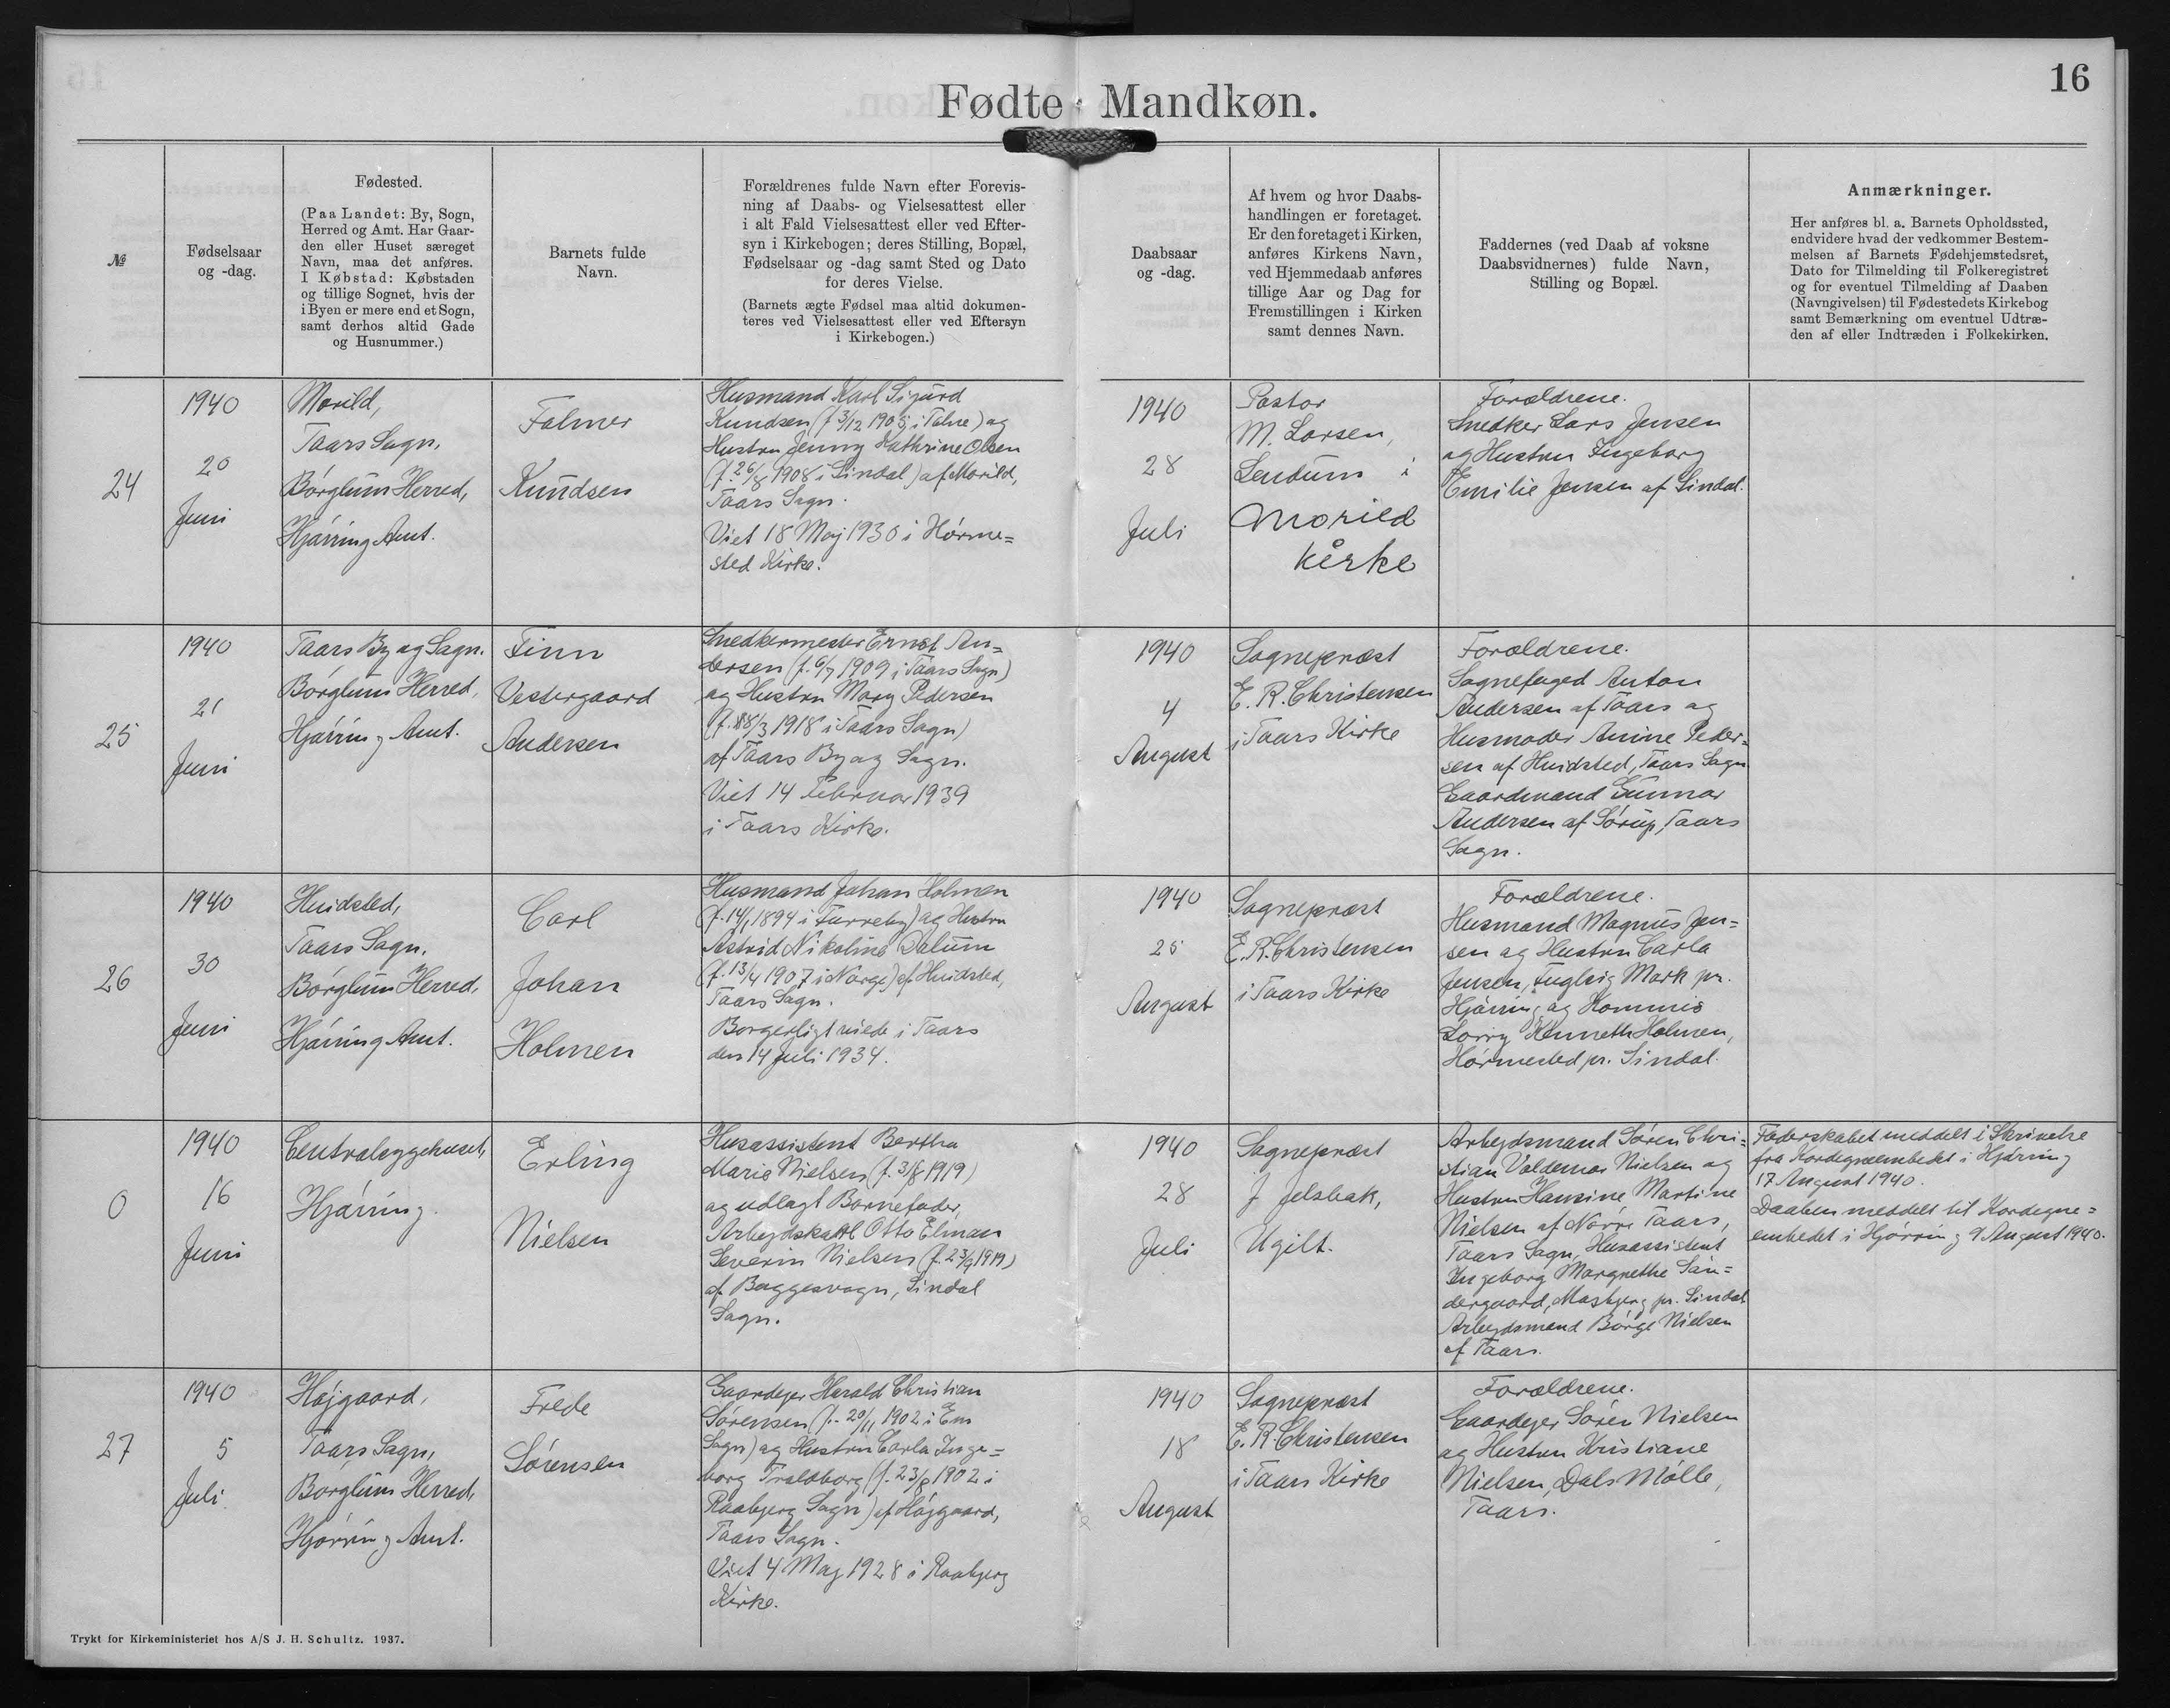 16
Fødte Mandkøn.
№
Fødselsaar
og -dag.
Fødested.
(Paa Landet: By, Sogn,
Herred og Amt. Har Gaar-
den eller Huset særeget
Navn, maa det anføres.
I Købstad: Købstaden
og tillige Sognet, hvis der
i Byen er mere end et Sogn,
samt derhos altid Gade
og Husnummer.)
Barnets fulde
Navn.
Forældrenes fulde Navn efter Forevis-
ning af Daabs- og Vielsesattest eller
i alt Fald Vielsesattest eller ved Efter-
syn i Kirkebogen; deres Stilling, Bopæl,
Fødselsaar og -dag samt Sted og Dato
for deres Vielse.
(Barnets ægte Fødsel maa altid dokumen-
teres ved Vielsesattest eller ved Eftersyn
i Kirkebogen.)
Daabsaar
og -dag.
Af hvem og hvor Daabs-
handlingen er foretaget.
Er den foretaget i Kirken,
anføres Kirkens Navn,
ved Hjemmedaab anføres
tillige Aar og Dag for
Fremstillingen i Kirken
samt dennes Navn.
Faddernes (ved Daab af voksne
Daabsvidnernes) fulde Navn,
Stilling og Bopæl.
Anmærkninger.
Her anføres bl. a. Barnets Opholdssted,
endvidere hvad der vedkommer Bestem-
melsen af Barnets Fødehjemstedsret,
Dato for Tilmelding til Folkeregistret
og for eventuel Tilmelding af Daaben
(Navngivelsen) til Fødestedets Kirkebog
samt Bemærkning om eventuel Udtræ-
den af eller Indtræden i Folkekirken.
24
1940
20
Juni
Morild,
Taars Sogn,
Børglum Herred,
Hjørring Amt.
Falmer
Knudsen
Husmand Karl Sigurd
Knudsen (f. 3/12 1905 i Tolne) og
Hustru Jenny Kathrine Olsen
(f. 26/8 1908 i Sindal) af Morild,
Taars Sogn.
Viet 18 Maj 1930 i Hørme=
sted Kirke.
1940
28
Juli
Pastor
M. Larsen,
Lendum i
Morild
Kirke
Forældrene.
Snedker Lars Jensen
og Hustru Ingeborg
Emilie Jensen af Sindal.
25
1940
21
Juni
Taars By og Sogn.
Børglum Herred,
Hjørring Amt.
Finn
Vestergaard
Andersen
Snedkermester Ernst An=
dersen (f. 6/7 1909 i Taars Sogn)
og Hustru Mary Pedersen
(f. 18/3 1918 i Taars Sogn)
af Taars By og Sogn.
Viet 14 Februar 1939
i Taars Kirke.
1940
4
August
Sognepræst
E. R. Christensen
i Taars Kirke
Forældrene.
Sognefoged Anton
Andersen af Taars og
Husmoder Anine Peder=
sen af Hvidsted, Taars Sogn
Gaardmand Gunnar
Andersen af Sørup, Taars
Sogn.
26
1940
30
Juni
Hvidsted,
Taars Sogn,
Børglum Herred,
Hjørring Amt.
Carl
Johan
Holmen
Husmand Johan Holmen
(f. 14/1 1894 i Furreby) og Hustru
Astrid Nikoline Dalum
(f. 13/4 1907 i Norge) af Hvidsted,
Taars Sogn.
Borgerligt viede i Taars
den 14 Juli 1934.
1940
25
August
Sognepræst
E. R. Christensen
i Taars Kirke
Forældrene.
Husmand Magnus Jen=
sen og Hustru Carla
Jensen, Fuglsig Mark pr.
Hjørring og Kommis
Lorry Kenneth Holmen,
Hørmested pr. Sindal.
0
1940
16
Juni
Centralsygehuset,
Hjørring.
Erling
Nielsen
Husassistent Bertha
Marie Nielsen (f. 3/8 1919)
og udlagt Barnefader,
Arbejdskarl Otto Elman
Severin Nielsen (f. 23/9 1919)
af Baggesvogn, Sindal
Sogn.
1940
28
Juli
Sognepræst
J. Jelsbak,
Ugilt.
Arbejdsmand Søren Chri=
stian Valdemar Nielsen og
Hustru Hansine Martine
Nielsen af Nørre Taars,
Taars Sogn, Husassistent
Ingeborg Margrethe Søn=
dergaard, Mosbjerg pr. Sindal
Arbejdsmand Børge Nielsen
af Taars.
Faderskabet meddelt i Skrivelse
fra Kordegneembedet i Hjørring
17 August 1940.
Daaben meddelt til Kordegne=
embedet i Hjørring 9 August 1940.
27
1940
5
Juli
Højgaard,
Taars Sogn,
Børglum Herred,
Hjørring Amt.
Frede
Sørensen
Gaardejer Harald Christian
Sørensen (f. 20/11 1902 i Em
Sogn) og Hustru Carla Inge=
borg Traldborg (f. 23/8 1902 i
Raabjerg Sogn) af Højgaard,
Taars Sogn.
Viet 4 Maj 1928 i Raabjerg
Kirke.
1940
18
August
Sognepræst
E. R. Christensen
i Taars Kirke
Forældrene.
Gaardejer Søren Nielsen
og Hustru Kristiane
Nielsen, Dals Mølle,
Taars.
Trykt for Kirkeministeriet hos A/S J. H. Schultz. 1937.